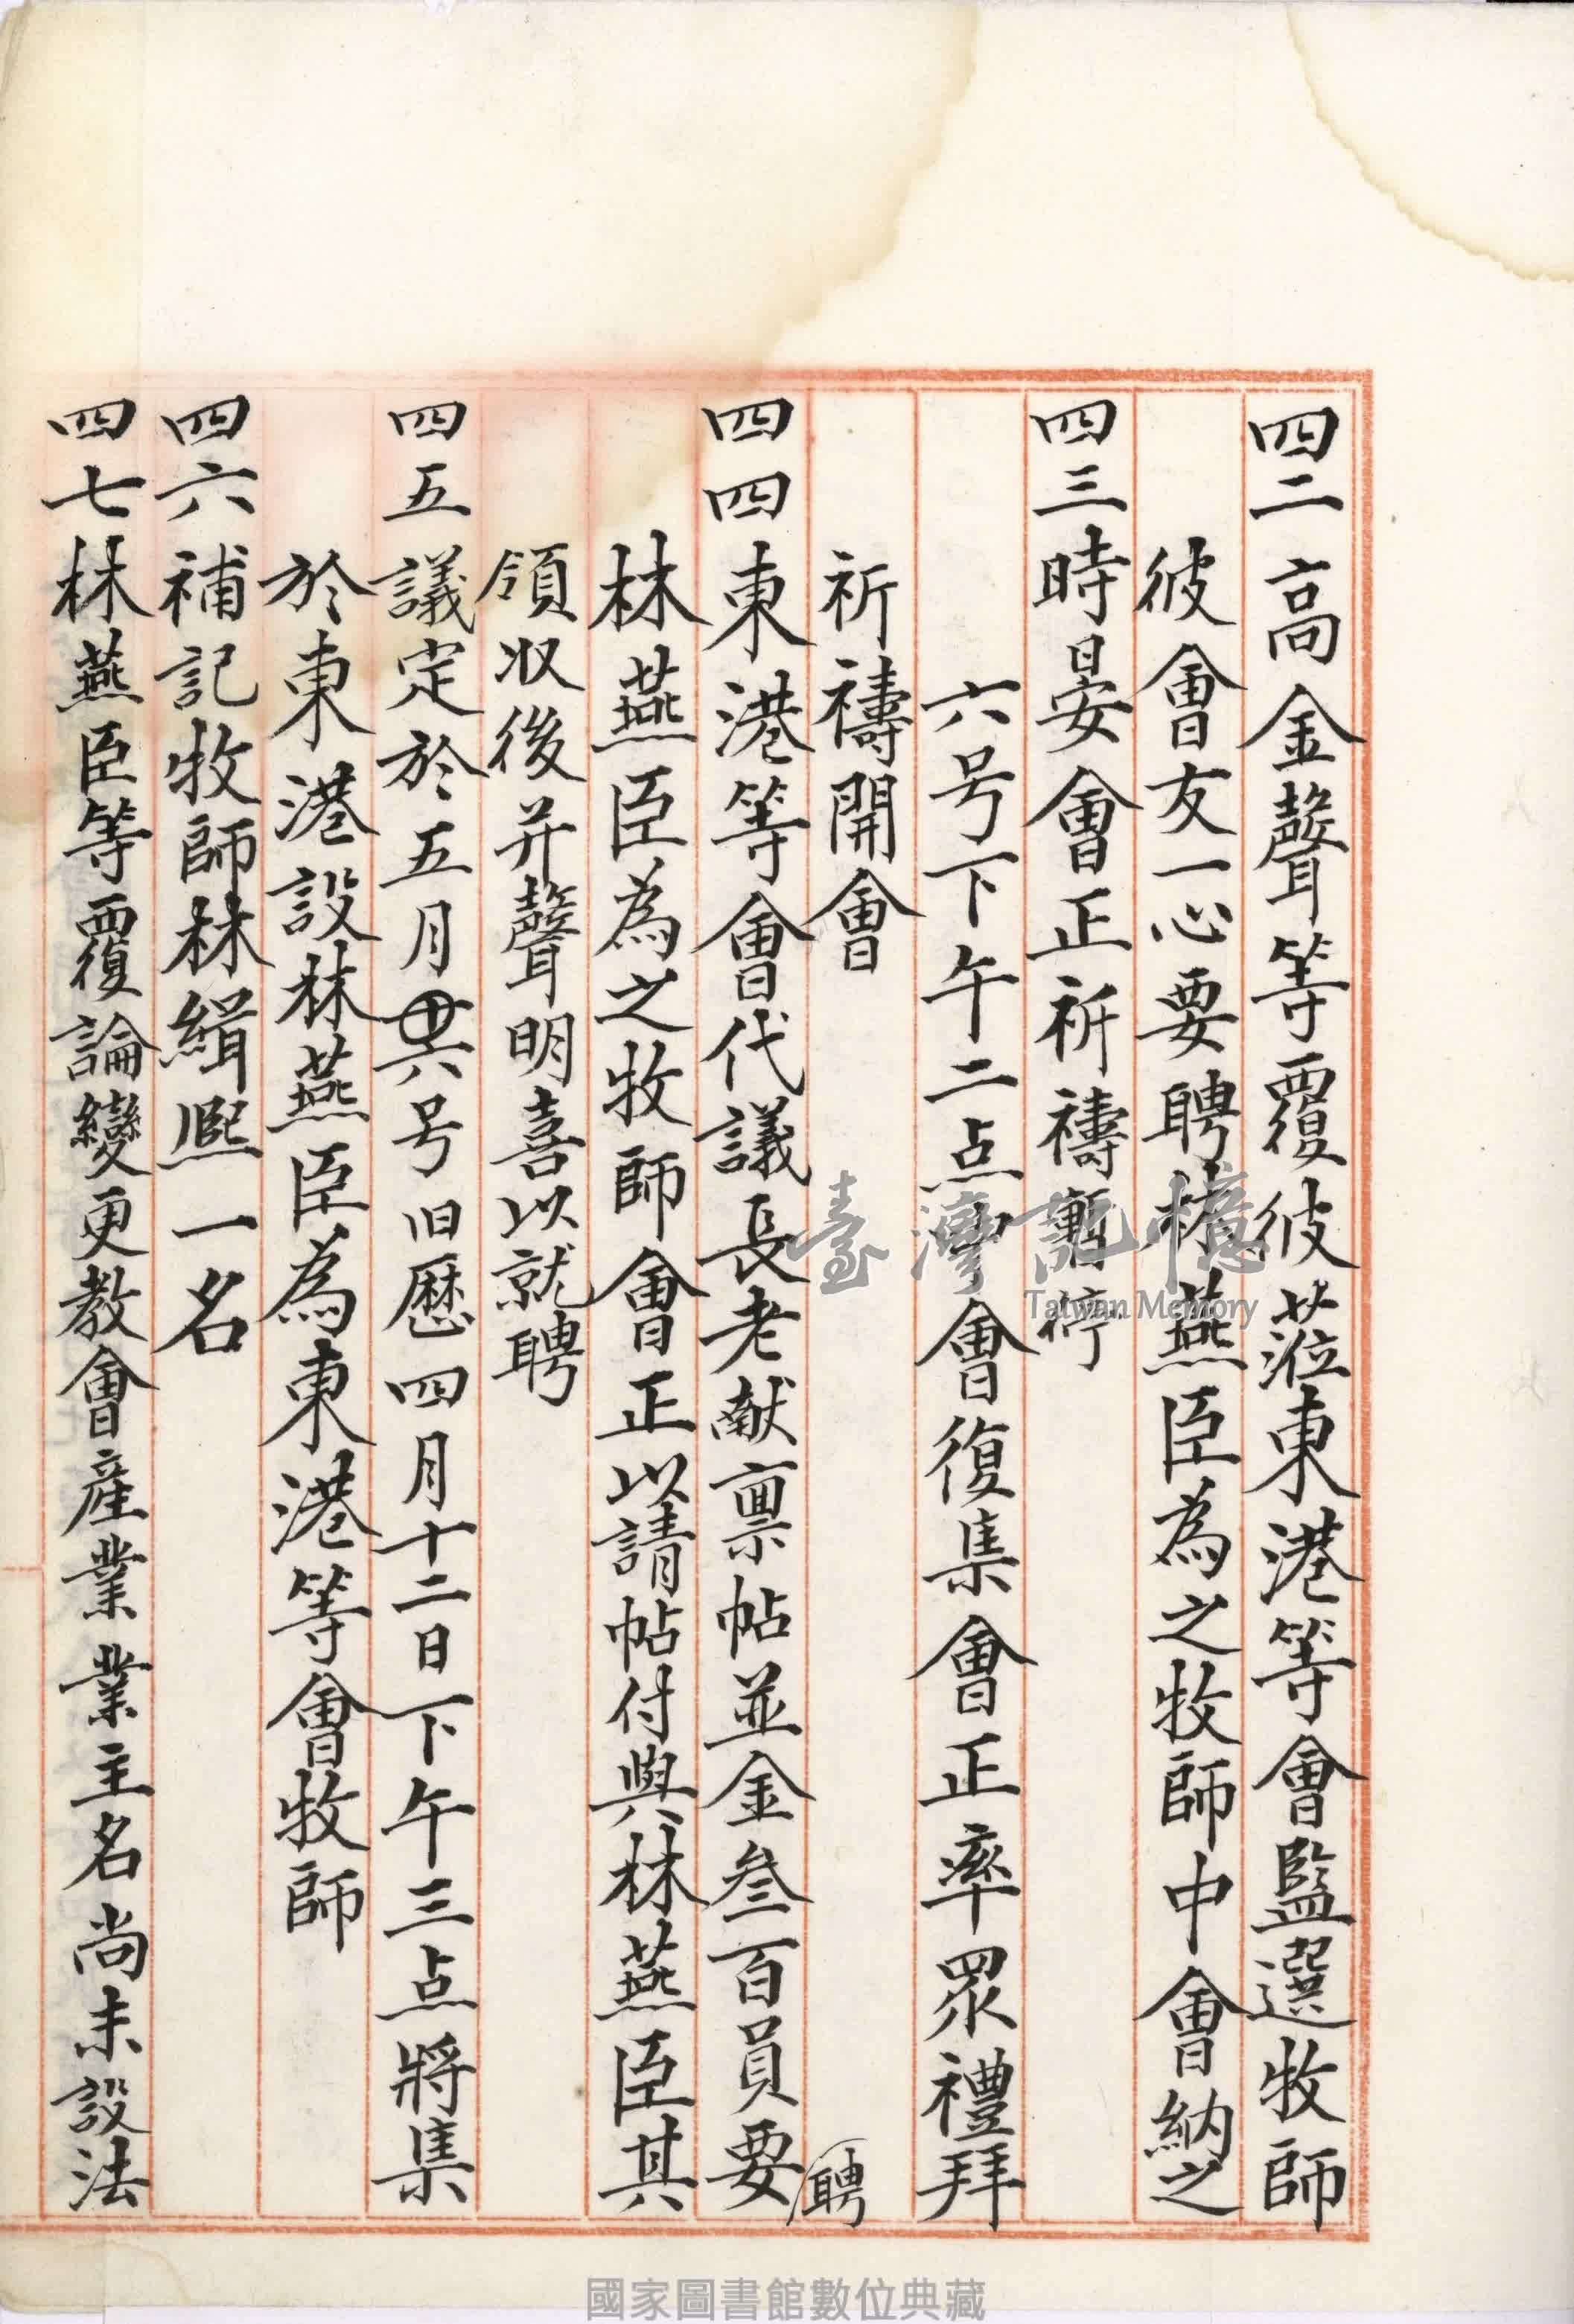 四二高金聲等覆彼蒞東港等會監選牧師
彼會友一心要聘林燕臣為之牧師中會納之
四三時晏會正祈禱暫停
六号下午二点中會復集會正率眾禮拜
祈禱開會
四四東港等會代議長老献禀帖並金叁百員要聘
林燕臣為之牧師會正以請帖付與林燕臣其
領収後并聲明喜以就聘
四五議定於五月廿六号旧歷四月十二日下午三点將集
於東港設林燕臣為東港等會牧師
四六補記牧師林緝熙一名
四七林燕臣等覆論變更教會產業業主名尚未設法
臺灣記憶
Taiwan Memory
國家圖書館數位典藏